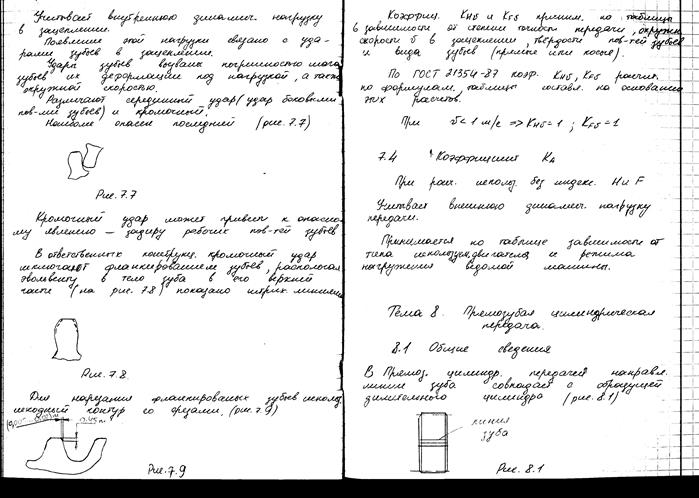 Учитывает внутреннюю динамич. нагрузку
в зацеплении.
Появление этой нагрузки связано с уда-
рами зубьев в зацеплении.
Удары зубьев вызваны погрешностью
зубьев их деформации под нагрузкой, а также
окружной скоростью.
Различают серединный удар (удар боковыми
пов-ми зубьев) и кромочный.
Наиболее опасен последний (рис. 7.7)
Рис. 7.7
Кромочный удар может привести к опасно-
му явлению – задиру рабочих пов-тей зубьев
В ответственных конструкц. кромочный удар
исключают фланкированием зубьев, располагая
эвольвенту в тело зуба в его верхней
части (на рис. 7.8) показано штрих. линиями
Рис. 7.8.
Для нарезания фланкированых зубьев использ.
исходный контур со срезами. (рис. 7.9)
0,45m
Рис. 7.9
Коэффиц. KHδ и KFδ приним. по таблицы
в зависимости от степени точности передачи, окружн.
скорости δ в зацеплении, твердости пов-тей зубьев
и вида зубьев (прямые или косые).
По ГОСТ 21354-87 коэф. KHδ, KFδ рассчит.
по формулам, таблицы составл. на основании
этих расчетов.
При υ<1 м/с => KHδ=1 ; KFδ=1
7.4 Коэффициент KA
При расч. использ. без индекс. H и F
Учитывает внешнюю динамич. нагрузку
передачи.
Принимается по таблице зависимости от
типа использ. двигателя и режима
нагружения ведомой машины.
Тема 8. Прямозубая цилиндрическая
передача.
8.1 Общие сведения
В прямоз. цилиндр. передачей направл.
линии зуба совпадает с образующей
делительного цилиндра (рис. 8.1)
линия
зуба
Рис. 8.1